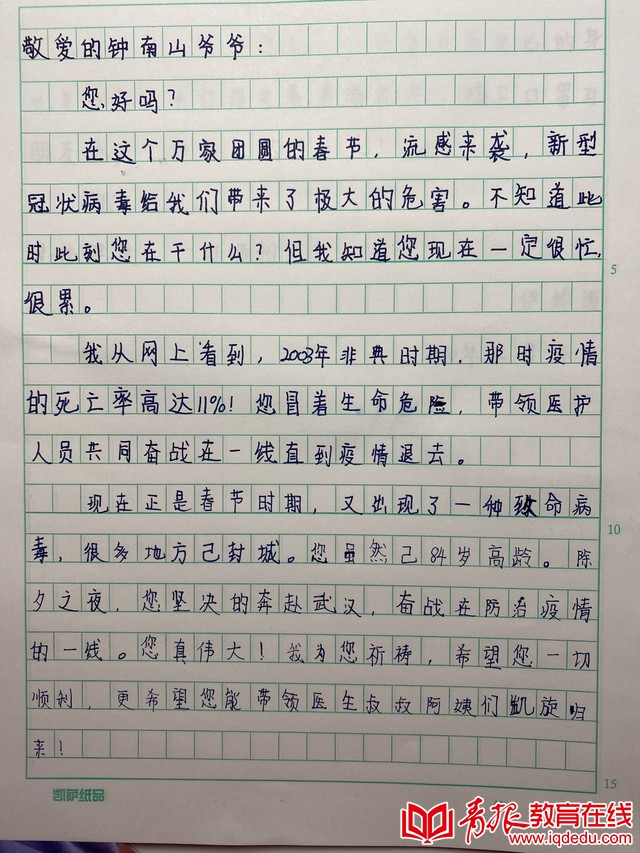 敬爱的钟南山爷爷:
您好吗?
在这个万家团圆的春节,流感来袭,新型
冠状病毒给我们带来了极大的危害。不知道此
时此刻您在干什么?但我知道您现在一定很忙,
很累。
我从网上看到,2003年非典时期,那时疫情
的死亡率高达11%!您冒着生命危险,带领医护
人员共同奋战在一线直到疫情退去。
现在正是春节时期,又出现了一种致命病
毒,很多地方已封城。您虽然已84岁高龄。除
夕之夜,您坚决的奔赴武汉,奋战在防治疫情
的一线。您真伟大!我为您祈祷,希望您一切
顺利,更希望您能带领医生叔叔阿姨们凯旋归
来!
5
10
15
凯萨纸品
青报教育在线
www.iqdedu.com